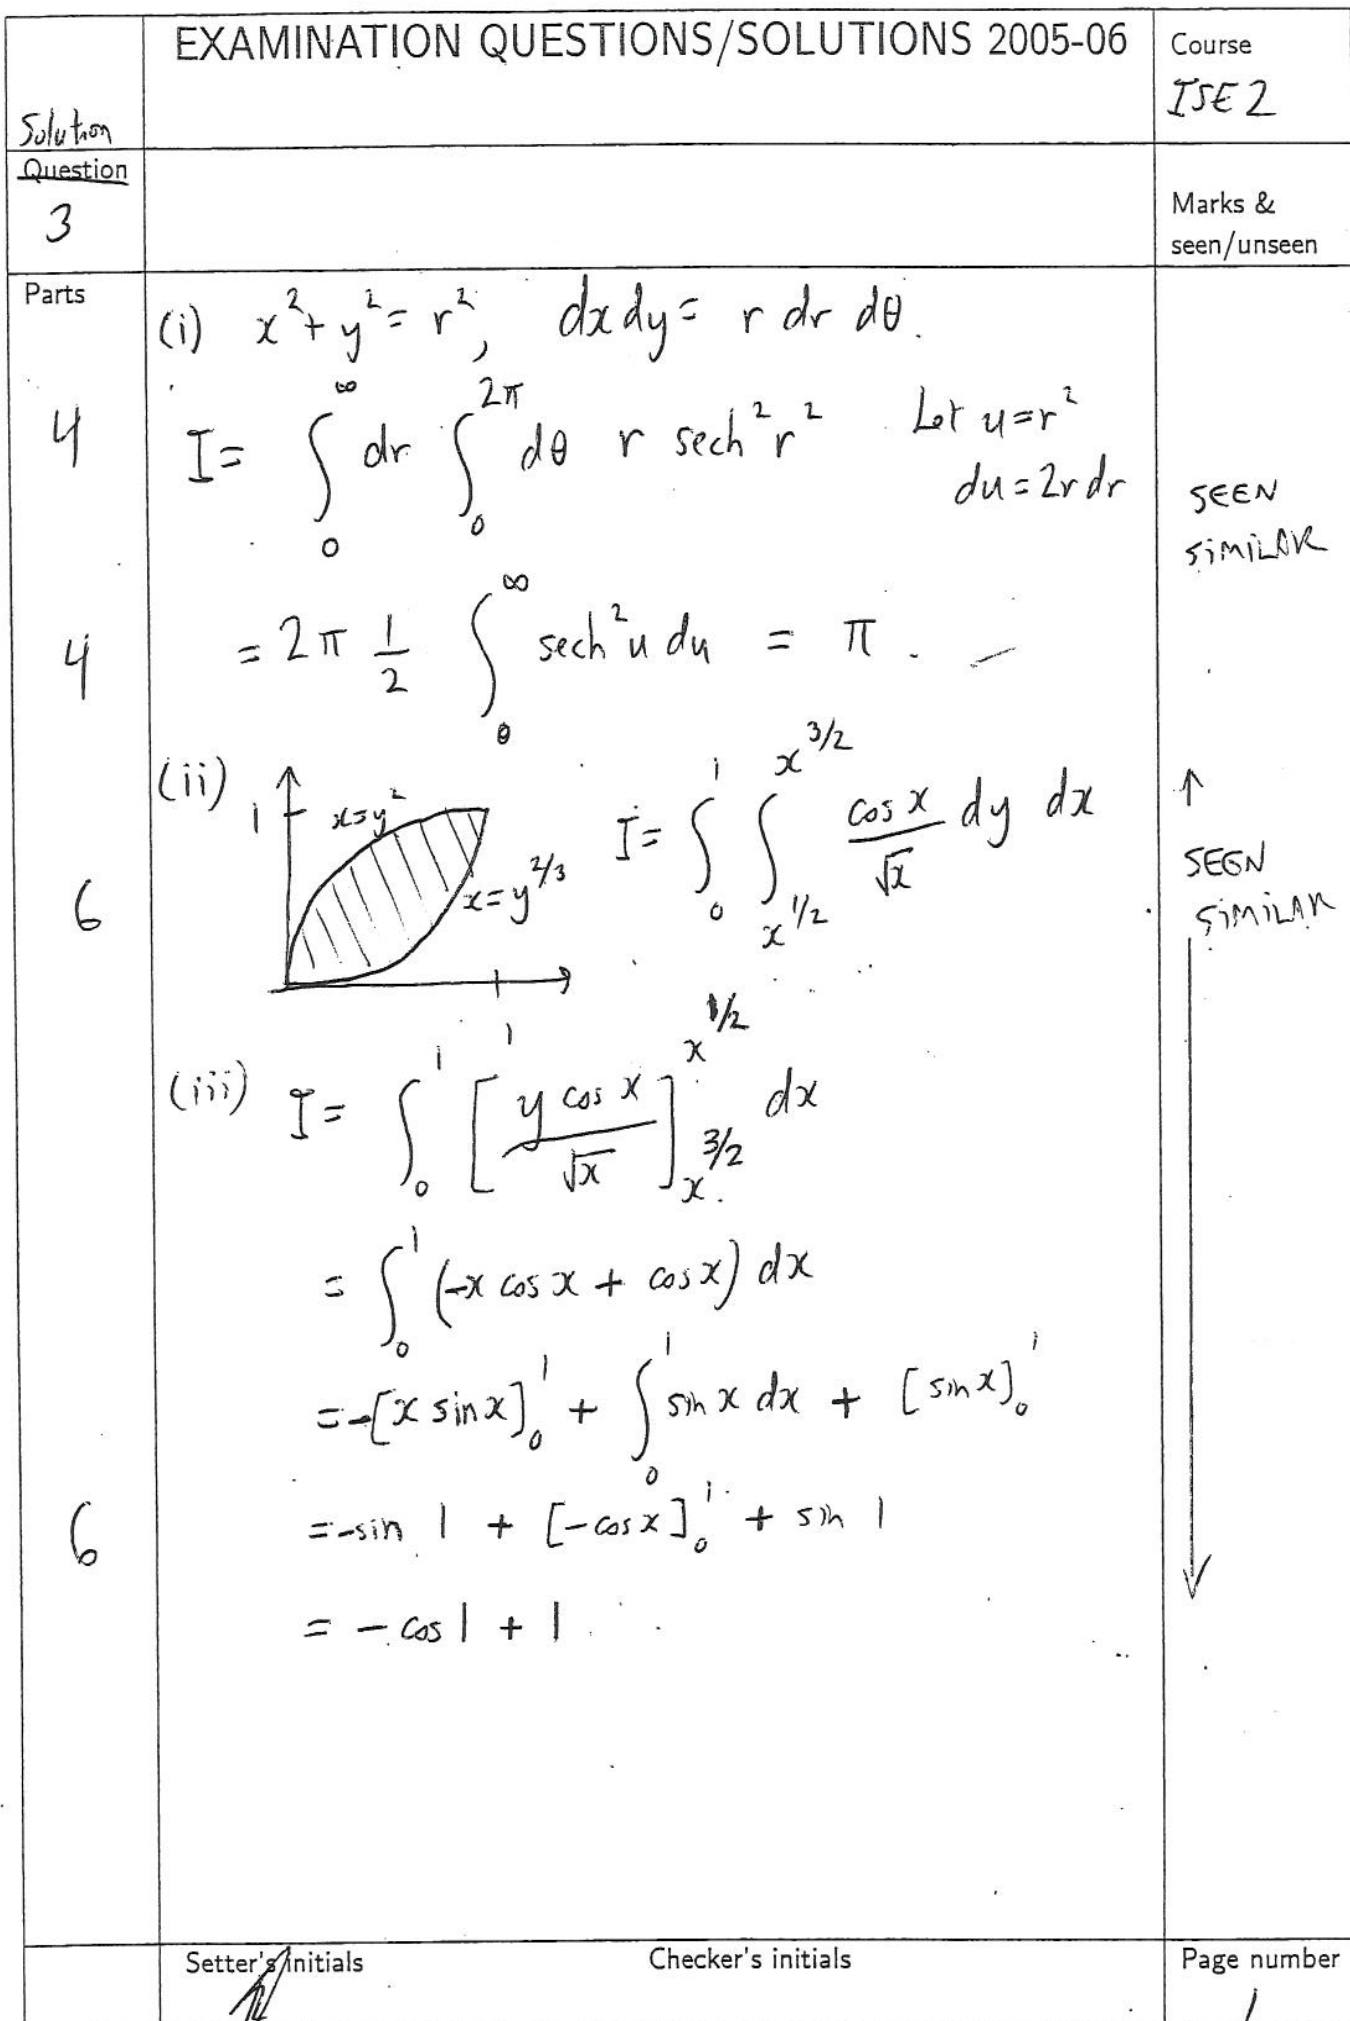 EXAMINATION QUESTIONS/SOLUTIONS 2005-06
Course
ISE 2
Solution
Question
3
Marks &
seen/unseen
Parts
(i) x² + y² = r², dx dy = r dr dθ.
4
I = ∫₀^∞ dr ∫₀^2π dθ r sech² r² Let u = r²
du = 2r dr
SEEN
SIMILAR
4
= 2π 1/2 ∫₀^∞ sech² u du = π.
(ii) 1 x = y² x = y^2/3 1
I = ∫₀^1 ∫_{x^1/2}^{x^3/2} cos x/√x dy dx
6
SEEN
SIMILAR
(iii) I = ∫₀^1 [y cos x/√x]_{x^3/2}^{x^1/2} dx
= ∫₀^1 (-x cos x + cos x) dx
= -[x sin x]₀^1 + ∫₀^1 sin x dx + [sin x]₀^1
6
= -sin 1 + [-cos x]₀^1 + sin 1
= - cos 1 + 1
Setter's initials
Checker's initials
Page number
1